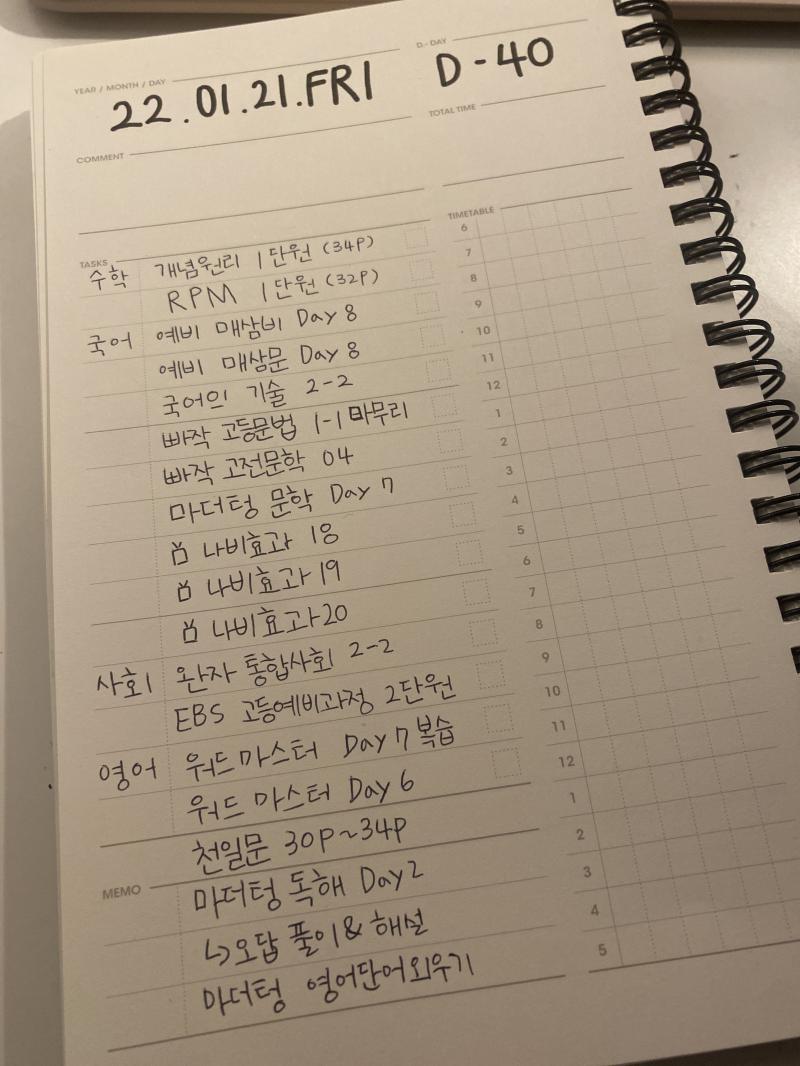 YEAR / MONTH / DAY
22.01.21.FRI
D-DAY
D-40
COMMENT
TOTAL TIME
TASKS
수학 개념원리 1단원 (34P)
RPM 1단원 (32P)
국어 예비 매삼비 Day 8
예비 매삼문 Day 8
국어의 기술 2-2
빠작 고등문법 1-1 마무리
빠작 고전문학 04
마더텅 문학 Day 7
나비효과 18
나비효과 19
나비효과 20
사회 완자 통합사회 2-2
EBS 고등예비과정 2단원
영어 워드마스터 Day 7 복습
워드 마스터 Day 6
천일문 30P~34P
MEMO
마더텅 독해 Day 2
↳오답 풀이 & 해설
마더텅 영어단어외우기
TIMETABLE
6
7
8
9
10
11
12
1
2
3
4
5
6
7
8
9
10
11
12
1
2
3
4
5